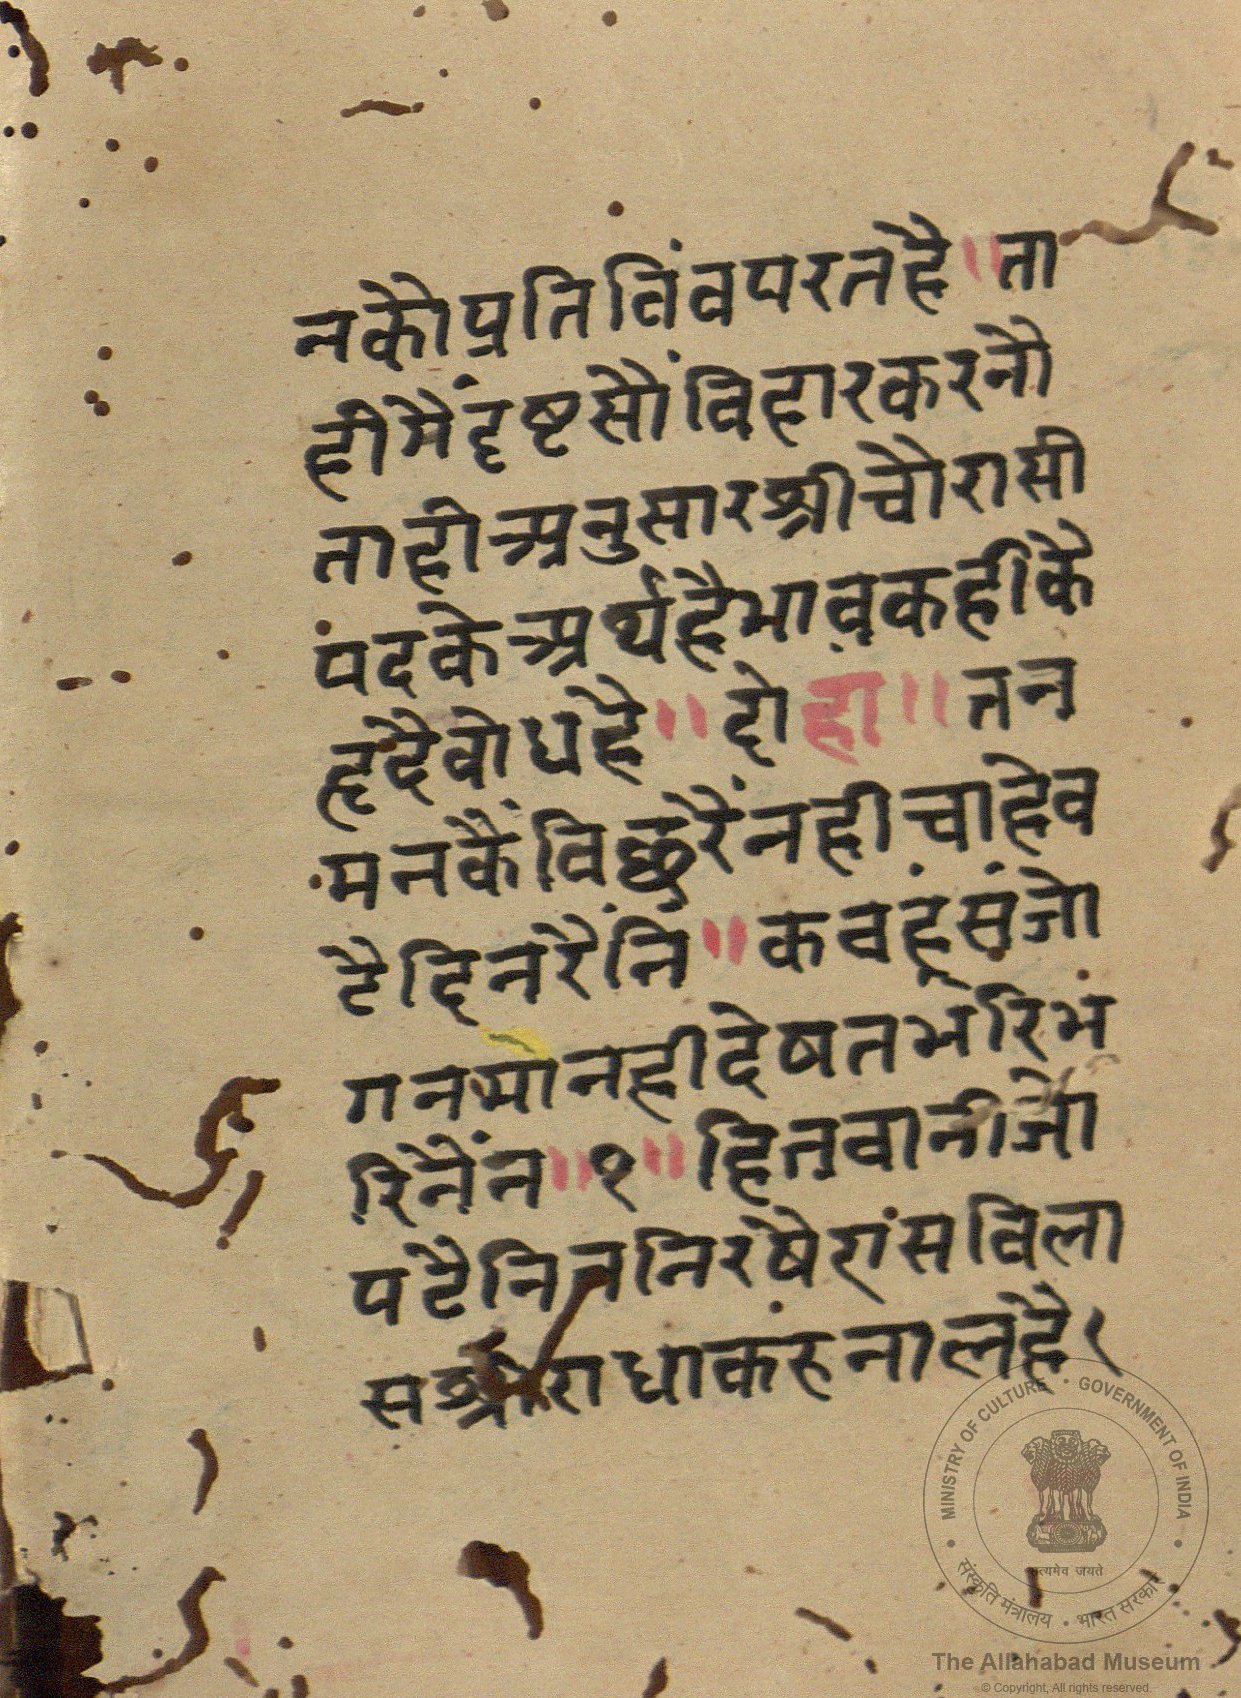 नकौप्रतिविंवपरतहै॥ता
हीमैंदृष्टसौंविहारकरनौ
ताहीअनुसारश्रीचौरासी
पदकेअर्थहैभावकहीकै
हृदैवोधहै॥दोहा॥तन
मनकैंविछुरैंनहीचाहैव
टैहिनरैंनिं॥कवहूंसंजो
गनमानहीदेषतभरिभं
रिनैंन॥१॥हितवानीजो
पटैनितनिरषैरांसविला
सश्रीराधाकंरुनालहै।
MINISTRY OF CULTURE • GOVERNMENT OF INDIA
सत्यमेव जयते
संस्कृति मंत्रालय • भारत सरकार
The Allahabad Museum
© Copyright, All rights reserved.